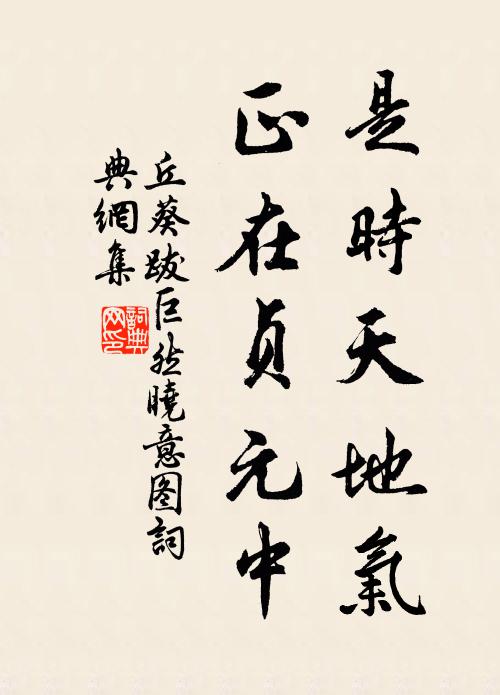 是時天地氣
正在貞元中
丘葵跋巨然曉意图詞
典網集
詞典
网印